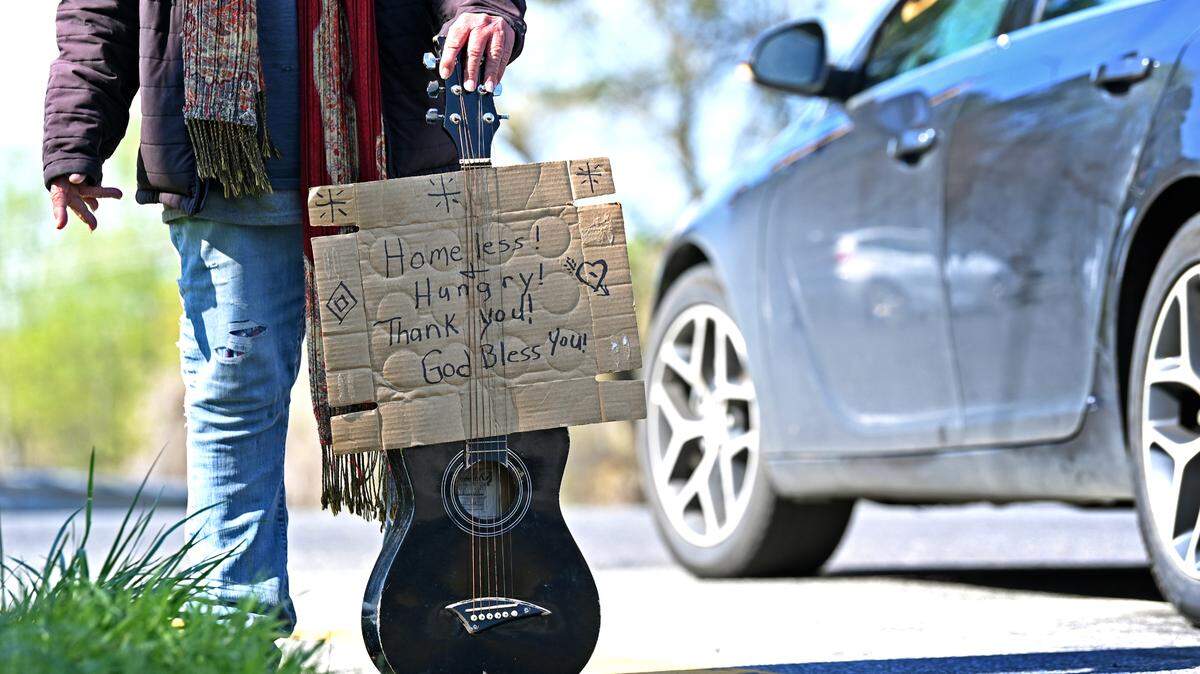 Homeless!
+
Hungry!
Thank you!
God Bless You!